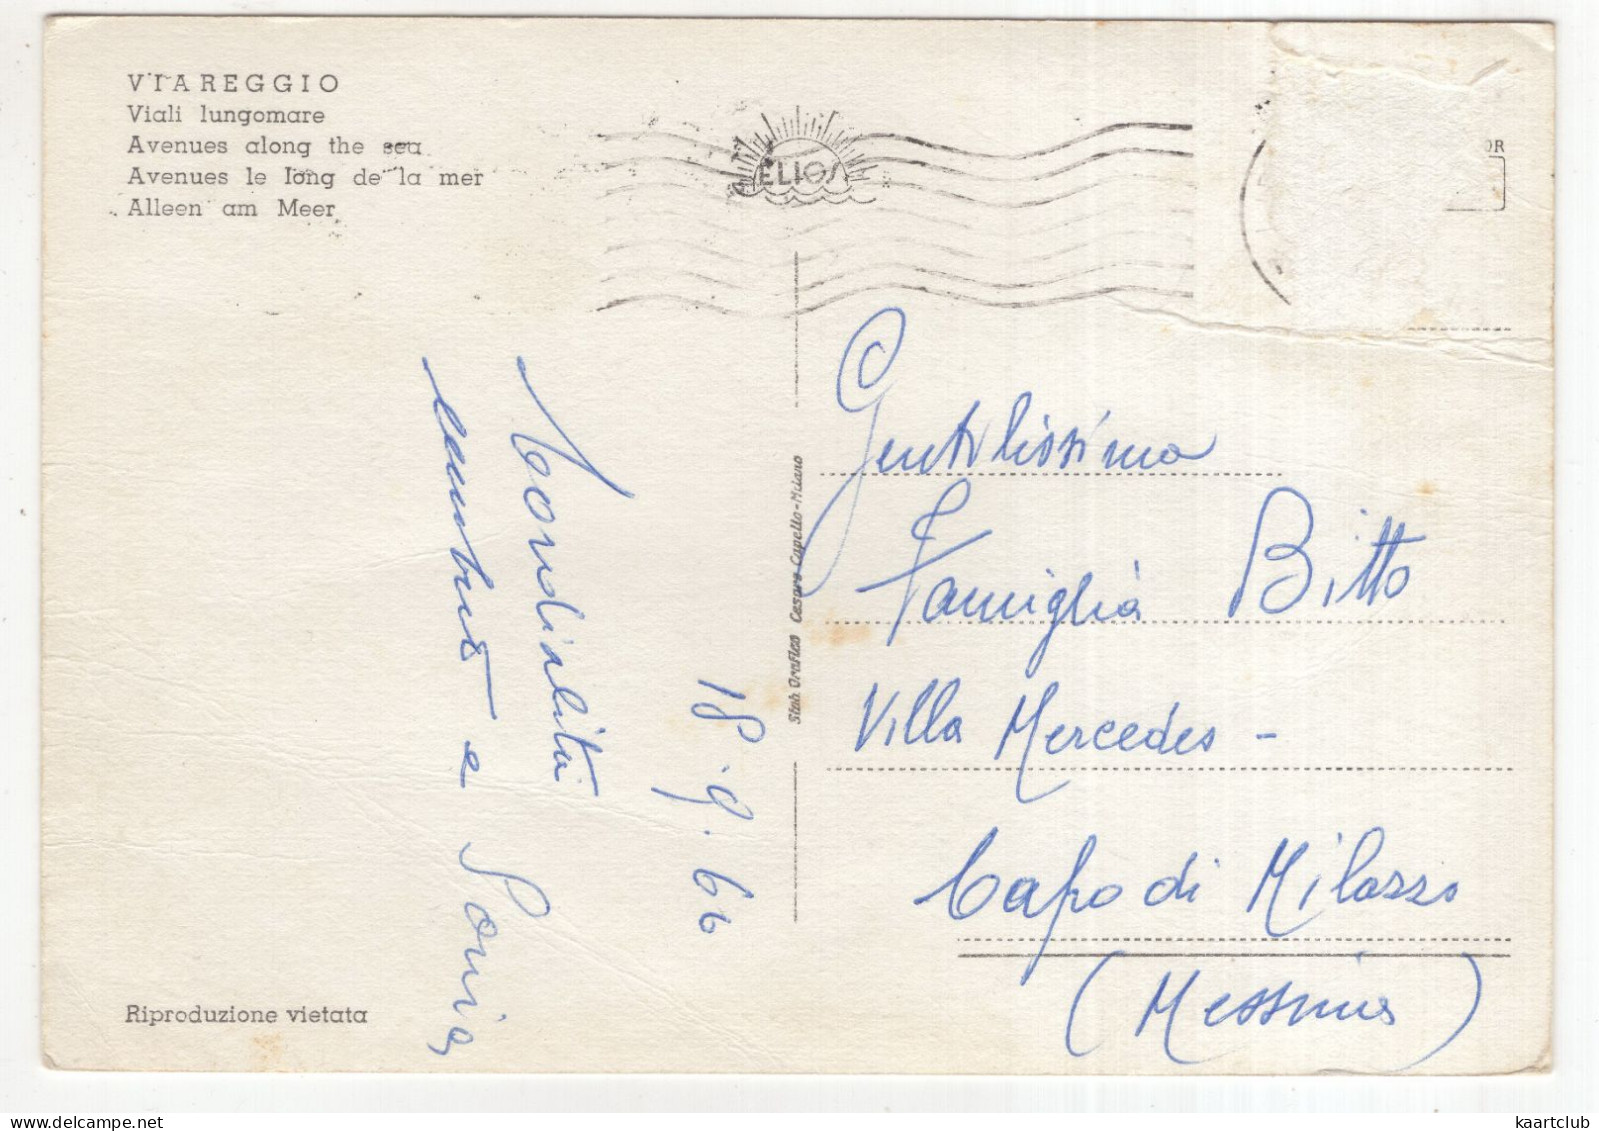 VIAREGGIO
Viali lungomare
Avenues along the sea
Avenues le long de la mer
Alleen am Meer
ELIOS
OR
Cordialità
e Sonia
18.9.66
Stab. Grafico Cesare Capello-Milano
Gentilissima
Famiglia Bitto
Villa Mercedes -
Capo di Milazzo
(Messina)
Riproduzione vietata
kaartclub